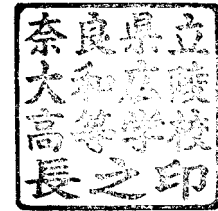 奈良県立
大和広陵
高等学校
長之印